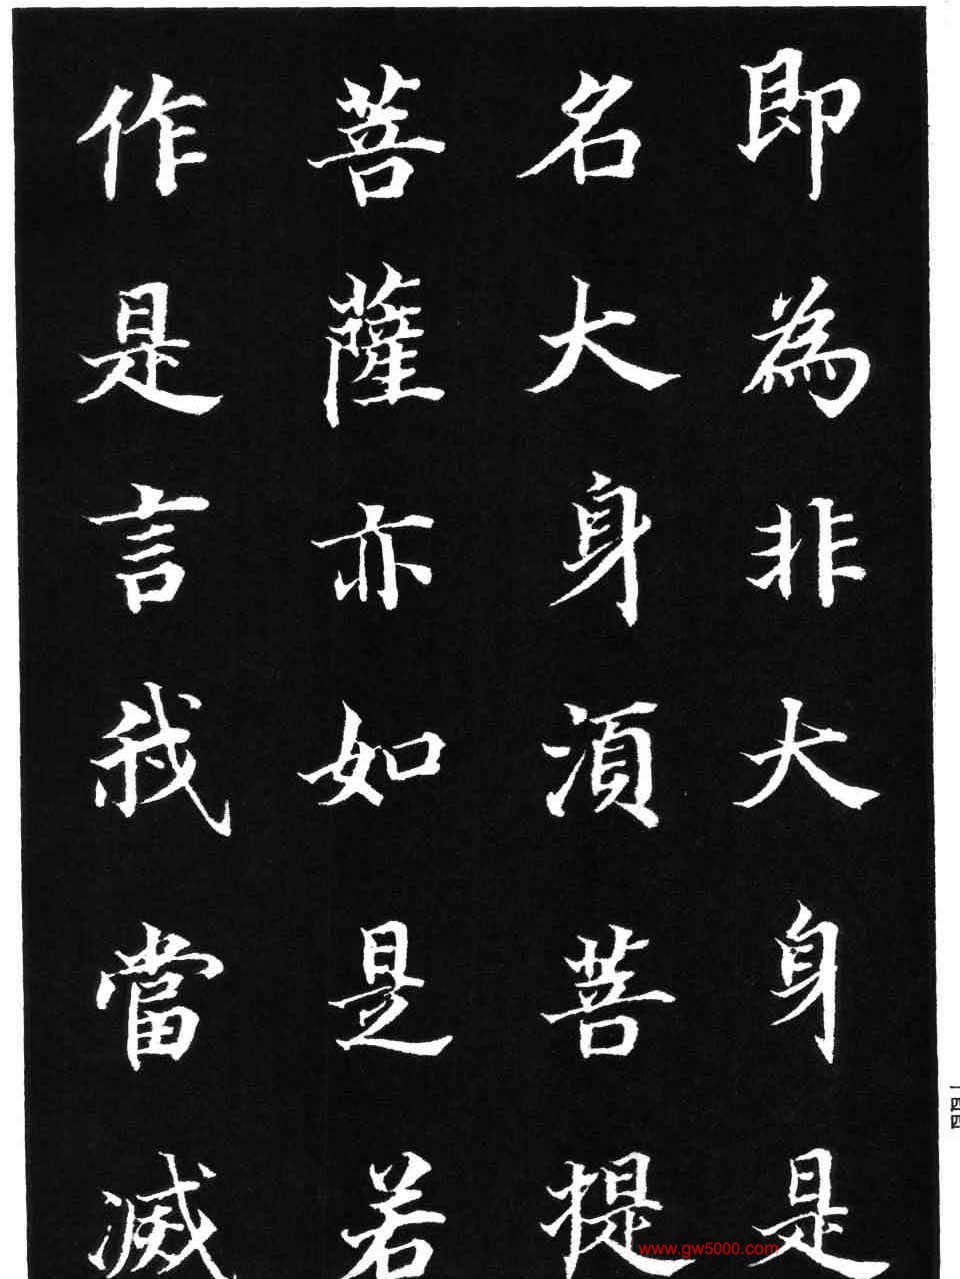 即為非大身是
名大身湏菩提
菩薩亦如是若
作是言我當滅
一四四
www.gw5000.com